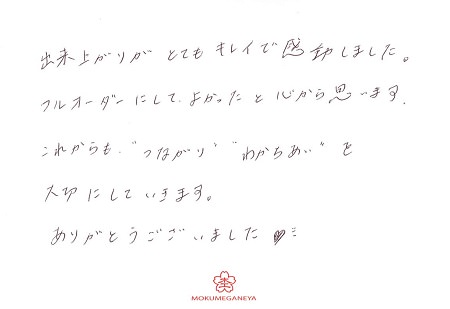 出来上がりが とても キレイで 感動しました。
フルオーダーにして、よかったと心から思います。
これからも、"つながり" "わかちあい" を
大切にしていきます。
ありがとうございました ♥ミ
MOKUMEGANEYA